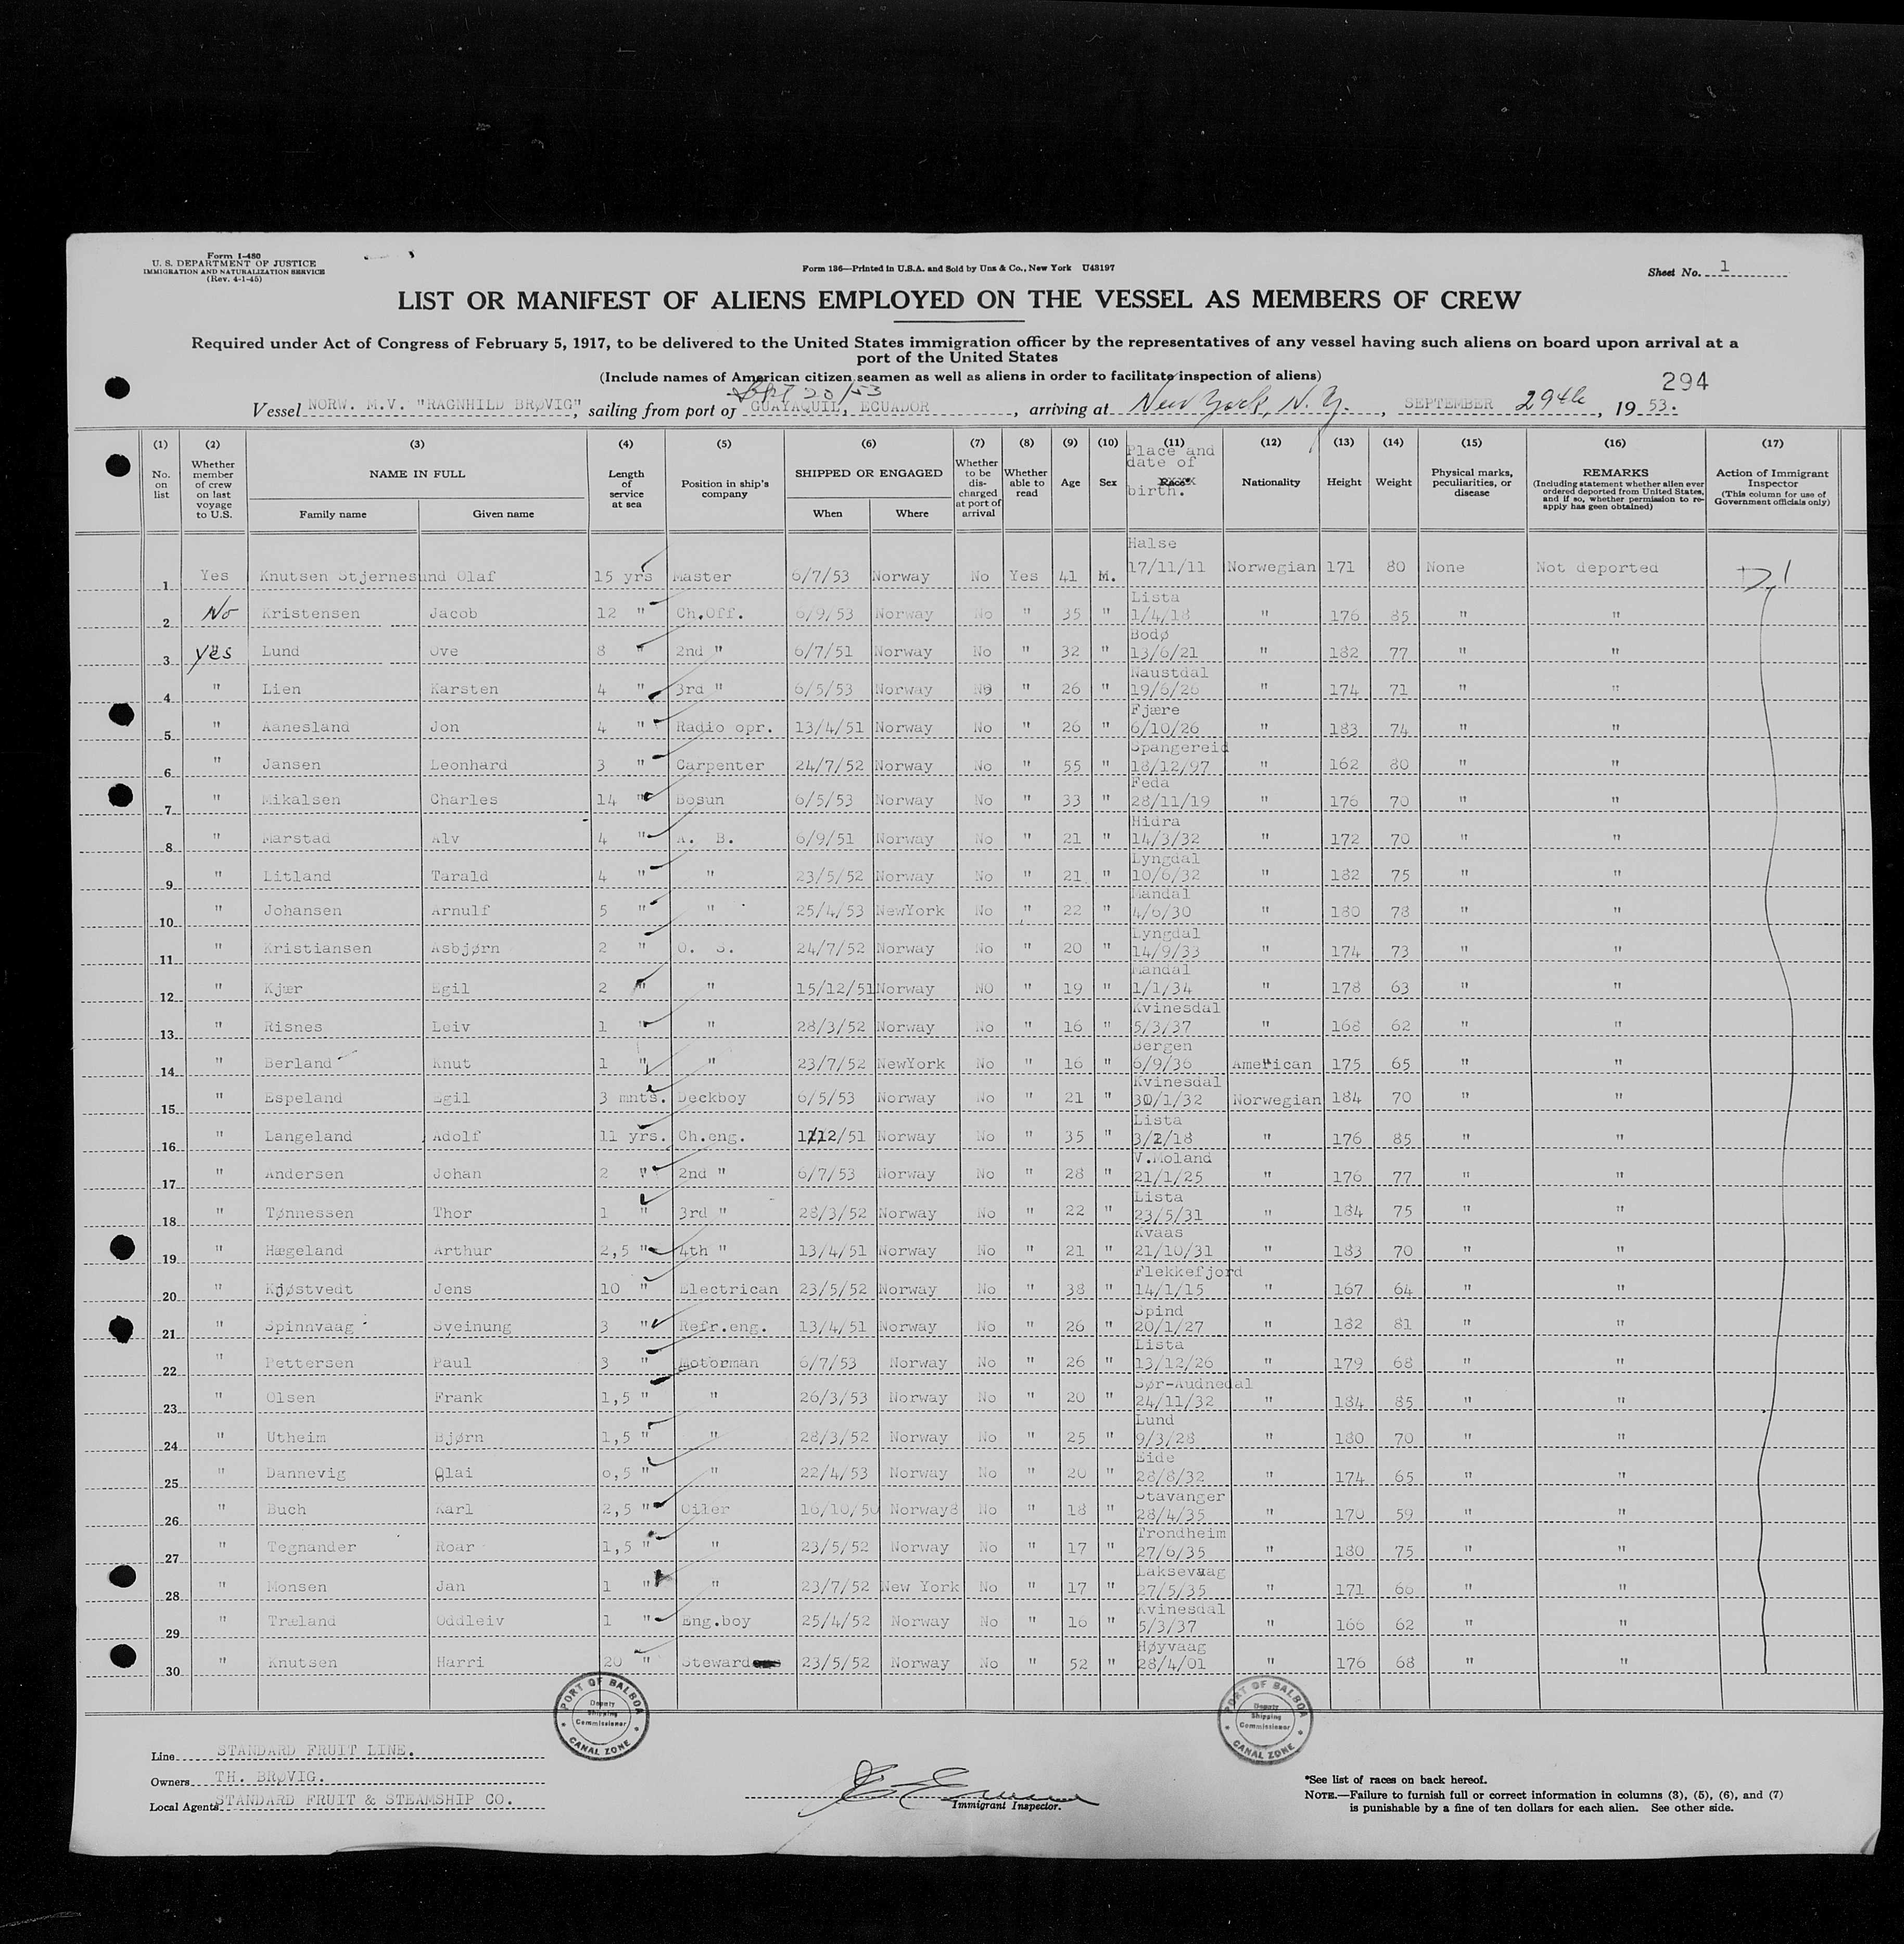 Form I-480
U. S. DEPARTMENT OF JUSTICE
IMMIGRATION AND NATURALIZATION SERVICE
(Rev. 4-1-45)
Form 136—Printed in U.S.A. and Sold by Unz & Co., New York U43197
Sheet No. 1
LIST OR MANIFEST OF ALIENS EMPLOYED ON THE VESSEL AS MEMBERS OF CREW
Required under Act of Congress of February 5, 1917, to be delivered to the United States immigration officer by the representatives of any vessel having such aliens on board upon arrival at a
port of the United States
(Include names of American citizen seamen as well as aliens in order to facilitate inspection of aliens)
294
Sept 20/53
Vessel NORW. M.V. "RAGNHILD BRØVIG", sailing from port of GUAYAQUIL, ECUADOR, arriving at New York, N.Y., SEPTEMBER 29th, 19 53.
(1) No. on list (2) Whether member of crew on last voyage to U.S. (3) NAME IN FULL Family name Given name (4) Length of service at sea (5) Position in ship's company (6) SHIPPED OR ENGAGED When Where (7) Whether to be discharged at port of arrival (8) Whether able to read (9) Age (10) Sex (11) Place and date of birth. (12) Nationality (13) Height (14) Weight (15) Physical marks, peculiarities, or disease (16) REMARKS (Including statement whether alien ever ordered deported from United States, and if so, whether permission to re-apply has geen obtained) (17) Action of Immigrant Inspector (This column for use of Government officials only)
1 Yes Knutsen Stjernesund Olaf 15 yrs Master 6/7/53 Norway No Yes 41 M. Halse 17/11/11 Norwegian 171 80 None Not deported
2 No Kristensen Jacob 12 " Ch.Off. 6/9/53 Norway No " 35 " Lista 1/4/18 " 176 85 " "
3 yes Lund Ove 8 " 2nd " 6/7/51 Norway No " 32 " Bodø 13/6/21 " 182 77 " "
4 " Lien Karsten 4 " 3rd " 6/5/53 Norway No " 26 " Naustdal 19/6/26 " 174 71 " "
5 " Aanesland Jon 4 " Radio opr. 13/4/51 Norway No " 26 " Fjære 6/10/26 " 183 74 " "
6 " Jansen Leonhard 3 " Carpenter 24/7/52 Norway No " 55 " Spangereid 18/12/97 " 162 80 " "
7 " Mikalsen Charles 14 " Bosun 6/5/53 Norway No " 33 " Feda 28/11/19 " 176 70 " "
8 " Marstad Alv 4 " A. B. 6/9/51 Norway No " 21 " Hidra 14/3/32 " 172 70 " "
9 " Litland Tarald 4 " " 23/5/52 Norway No " 21 " Lyngdal 10/6/32 " 182 75 " "
10 " Johansen Arnulf 5 " " 25/4/53 NewYork No " 22 " Mandal 4/6/30 " 180 78 " "
11 " Kristiansen Asbjørn 2 " O. S. 24/7/52 Norway No " 20 " Lyngdal 14/9/33 " 174 73 " "
12 " Kjær Egil 2 " " 15/12/51 Norway NO " 19 " Mandal 1/1/34 " 178 63 " "
13 " Risnes Leiv 1 " " 28/3/52 Norway No " 16 " Kvinesdal 5/3/37 " 168 62 " "
14 " Berland Knut 1 " " 23/7/52 NewYork No " 16 " Bergen 6/9/36 American 175 65 " "
15 " Espeland Egil 3 mnts. Deckboy 6/5/53 Norway No " 21 " Kvinesdal 30/1/32 Norwegian 184 70 " "
16 " Langeland Adolf 11 yrs. Ch.eng. 1/12/51 Norway No " 35 " Lista 3/2/18 " 176 85 " "
17 " Andersen Johan 2 " 2nd " 6/7/53 Norway No " 28 " V.Moland 21/1/25 " 176 77 " "
18 " Tønnessen Thor 1 " 3rd " 28/3/52 Norway No " 22 " Lista 23/5/31 " 184 75 " "
19 " Hægeland Arthur 2,5 " 4th " 13/4/51 Norway No " 21 " Kvaas 21/10/31 " 183 70 " "
20 " Kjøstvedt Jens 10 " Electrican 23/5/52 Norway No " 38 " Flekkefjord 14/1/15 " 167 64 " "
21 " Spinnvaag Sveinung 3 " Refr.eng. 13/4/51 Norway No " 26 " Spind 20/1/27 " 182 81 " "
22 " Pettersen Paul 3 " Motorman 6/7/53 Norway No " 26 " Lista 13/12/26 " 179 68 " "
23 " Olsen Frank 1,5 " " 26/3/53 Norway No " 20 " Sør-Audnedal 24/11/32 " 184 85 " "
24 " Utheim Bjørn 1,5 " " 28/3/52 Norway No " 25 " Lund 9/3/28 " 180 70 " "
25 " Dannevig Olai 0,5 " " 22/4/53 Norway No " 20 " Eide 28/8/32 " 174 65 " "
26 " Buch Karl 2,5 " Oiler 16/10/50 Norway8 No " 18 " Stavanger 28/4/35 " 170 59 " "
27 " Tegnander Roar 1,5 " " 23/5/52 Norway No " 17 " Trondheim 27/6/35 " 180 75 " "
28 " Monsen Jan 1 " " 23/7/52 New York No " 17 " Laksevaag 27/5/35 " 171 60 " "
29 " Træland Oddleiv 1 " Eng.boy 25/4/52 Norway No " 16 " Kvinesdal 5/3/37 " 166 62 " "
30 " Knutsen Harri 20 " Steward 23/5/52 Norway No " 52 " Høyvaag 28/4/01 " 176 68 " "
PORT OF BALBOA Deputy Shipping Commissioner CANAL ZONE
PORT OF BALBOA Deputy Shipping Commissioner CANAL ZONE
Line STANDARD FRUIT LINE.
Owners TH. BRØVIG.
Local Agents STANDARD FRUIT & STEAMSHIP CO.
Immigrant Inspector.
*See list of races on back hereof.
NOTE.—Failure to furnish full or correct information in columns (3), (5), (6), and (7)
is punishable by a fine of ten dollars for each alien. See other side.